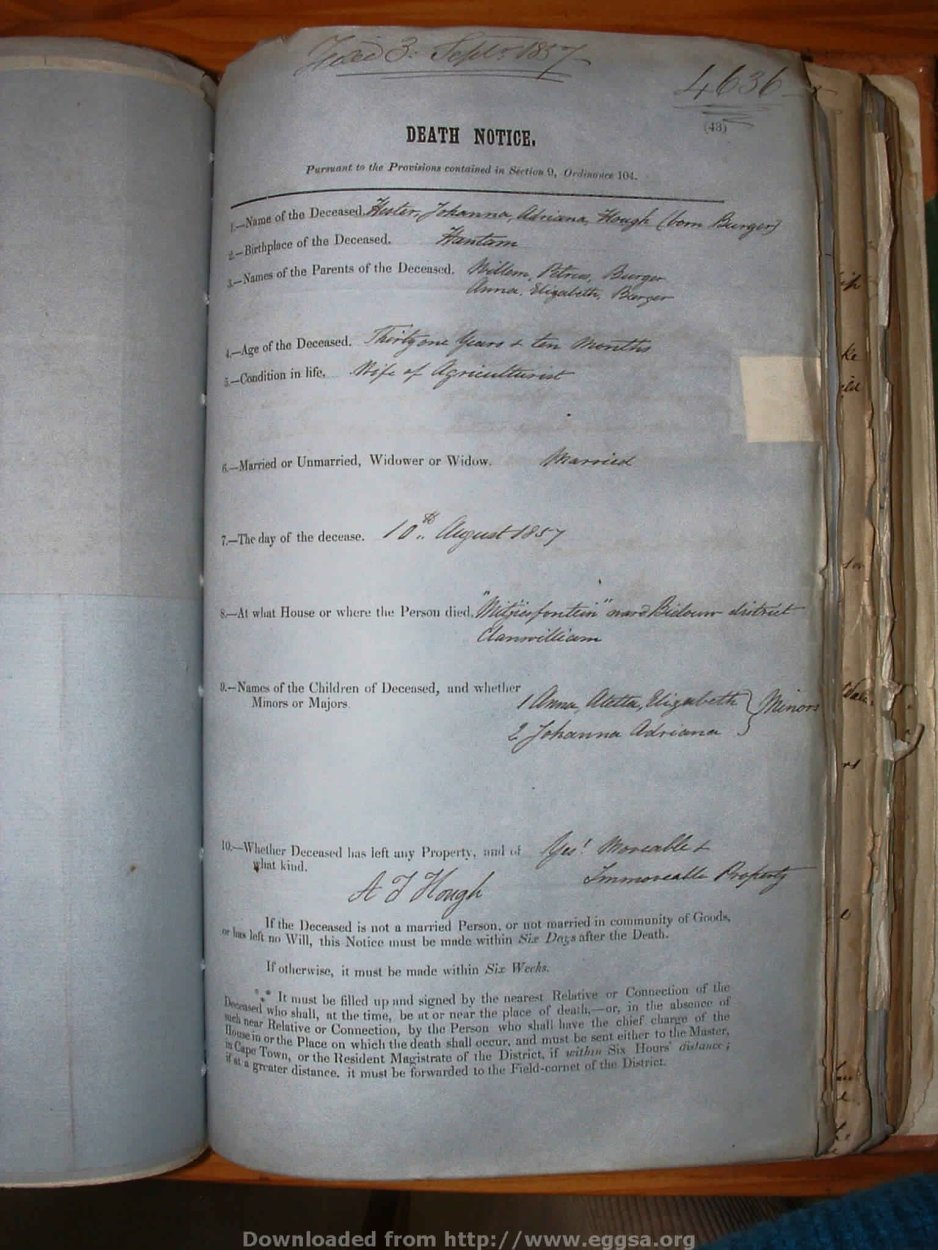 Filed 3. Septr. 1857
4636
(43)
DEATH NOTICE,
Pursuant to the Provisions contained in Section 9, Ordinance 104.
1.—Name of the Deceased. Hester, Johanna, Adriana, Hough (born Burger)
2.—Birthplace of the Deceased. Hantam
3.—Names of the Parents of the Deceased. Willem, Petrus, Burger
Anna, Elizabeth, Burger
4.—Age of the Deceased. Thirty one Years & ten Months
5.—Condition in life. Wife of Agriculturist
6.—Married or Unmarried, Widower or Widow. Married
7.—The day of the decease. 10th August 1857
8.—At what House or where the Person died. ward Bidouw district
Clanwilliam
9.—Names of the Children of Deceased, and whether
Minors or Majors
1 Anna, Aletta, Elizabeth } Minors
2 Johanna Adriana
10.—Whether Deceased has left any Property, and of Yes! Moveable &
what kind. Immoveable Property
A J Hough
If the Deceased is not a married Person, or not married in community of Goods,
or has left no Will, this Notice must be made within Six Days after the Death.
If otherwise, it must be made within Six Weeks.
*** It must be filled up and signed by the nearest Relative or Connection of the
Deceased who shall, at the time, be at or near the place of death,—or, in the absence of
such near Relative or Connection, by the Person who shall have the chief charge of the
House in or the Place on which the death shall occur, and must be sent either to the Master,
in Cape Town, or the Resident Magistrate of the District, if within Six Hours' distance;
if at a greater distance, it must be forwarded to the Field-cornet of the District.
Downloaded from http://www.eggsa.org